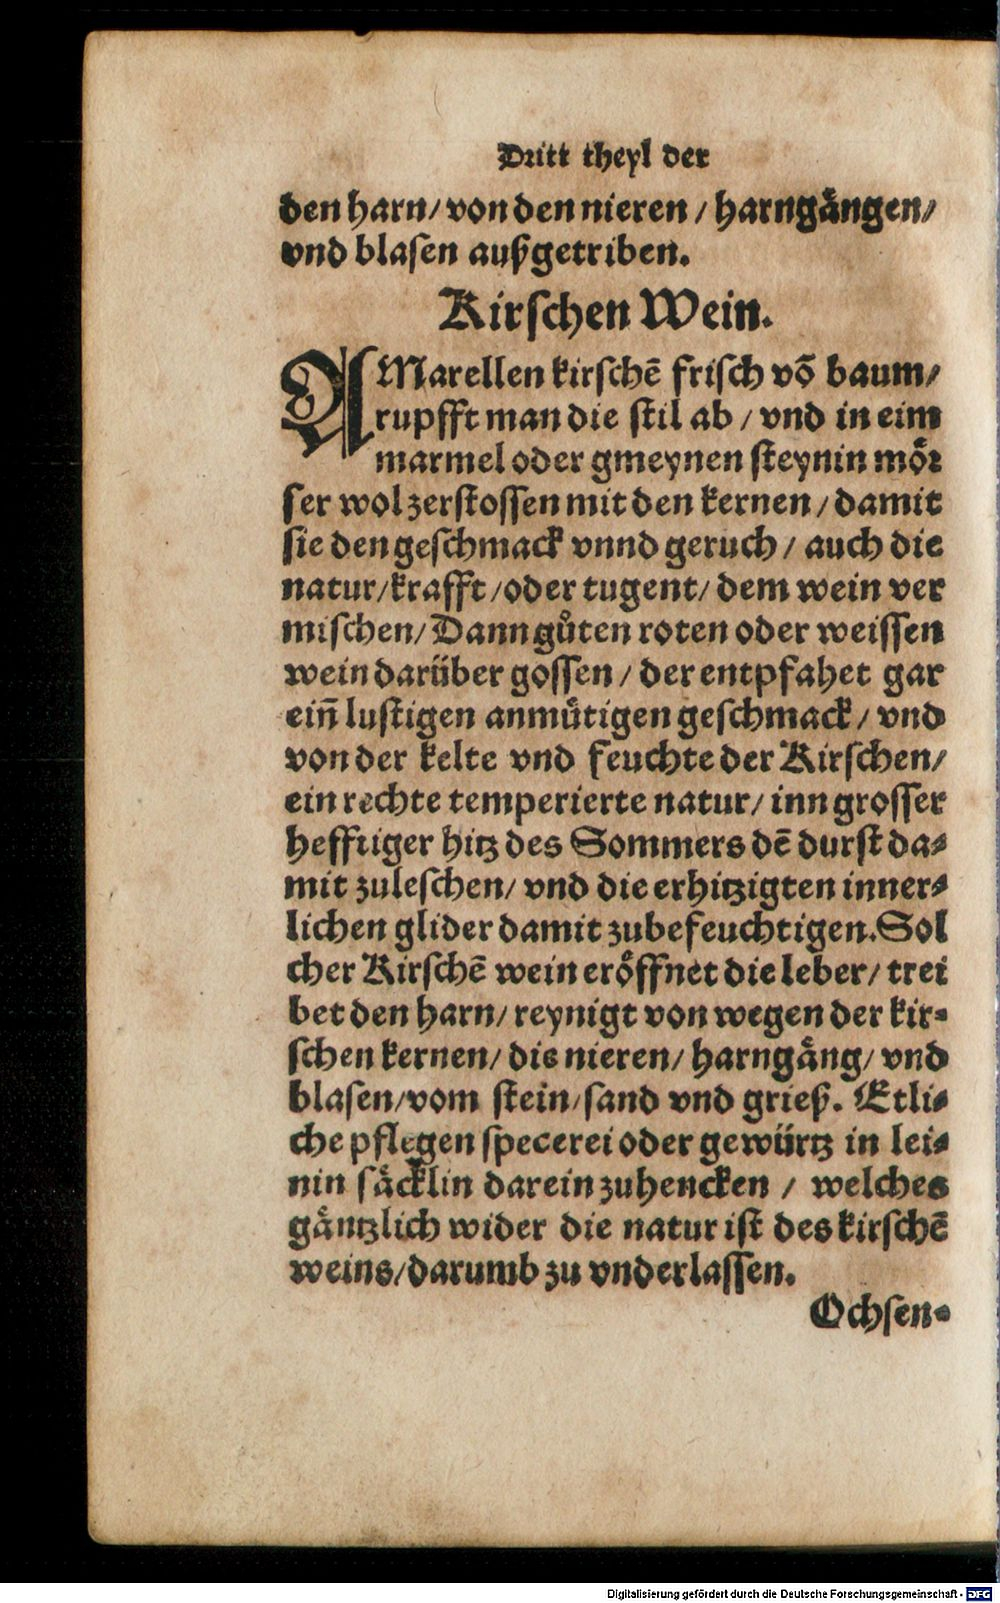 Dritt theyl der
den harn/ von den nieren / harngaͤngen/
vnd blasen außgetriben.
Kirschen Wein.
AMarellen kirschē frisch vō baum/
rupfft man die stil ab / vnd in eim
marmel oder gmeynen steynin moͤr
ser wol zerstossen mit den kernen / damit
sie den geschmack vnnd geruch / auch die
natur/ krafft / oder tugent/ dem wein ver
mischen/ Dann guͦten roten oder weissen
wein daruͤber gossen / der entpfahet gar
ein̄ lustigen anmuͤtigen geschmack/ vnd
von der kelte vnd feuchte der Kirschen/
ein rechte temperierte natur/ inn grosser
hefftiger hitz des Sommers dē durst da⸗
mit zuleschen/ vnd die erhitzigten inner⸗
lichen glider damit zubefeuchtigen. Sol
cher Kirschē wein eroͤffnet die leber/ trei
bet den harn/ reynigt von wegen der kir⸗
schen kernen/ die nieren/ harngaͤng/ vnd
blasen/ vom stein/ sand vnd grieß. Etli⸗
che pflegen specerei oder gewuͤrtz in lei⸗
nin saͤcklin darein zuhencken / welches
gaͤntzlich wider die natur ist des kirschē
weins/ darumb zu vnderlassen.
Ochsen⸗
Digitalisierung gefördert durch die Deutsche Forschungsgemeinschaft - DFG